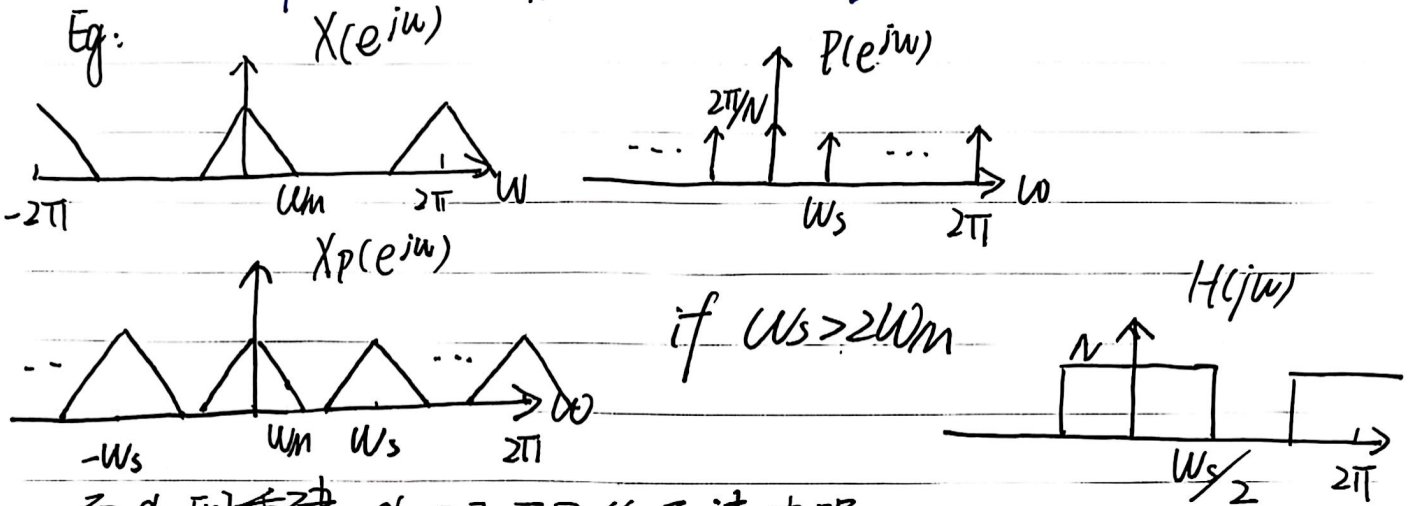 Eg:
X(e^{jω})
-2π ωm 2π ω
P(e^{jω})
2π/N
... ...
ωs 2π ω
Xp(e^{jω})
... ...
-ωs ωm ωs 2π ω
if ωs>2ωm
H(jω)
N
ωs/2 2π